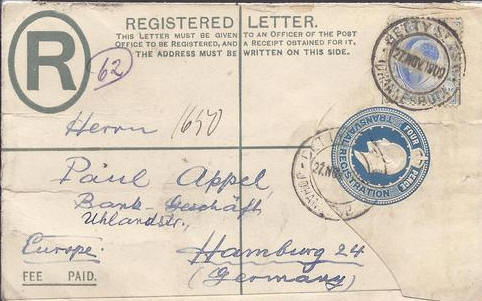 REGISTERED LETTER.
THIS LETTER MUST BE GIVEN TO AN OFFICER OF THE POST
OFFICE TO BE REGISTERED, AND A RECEIPT OBTAINED FOR IT,
AND THE ADDRESS MUST BE WRITTEN ON THIS SIDE.
R
62
JEPPESTOWN
27 NOV 1909
JOHANNESBURG
TRANSVAAL REGISTRATION
FOUR PENCE
27 NOV
Herrn
1650
Paul Appel,
Bank-Geschäft
Uhlandstr.,
Europe
Hamburg 24
(Germany)
FEE PAID.